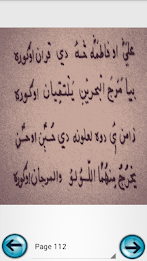 علي او فاطمه څه دي قران اوګوره
بيا مَرَجَ الْبَحْرَيْنِ يَلْتَقِيَان اوګوره
زامن ئې دوه لعلونه دي حسن او حسين
يَخْرُجُ مِنْهُمَا اللُّؤْلُؤُ وَالْمَرْجَان اوګوره
Page 112